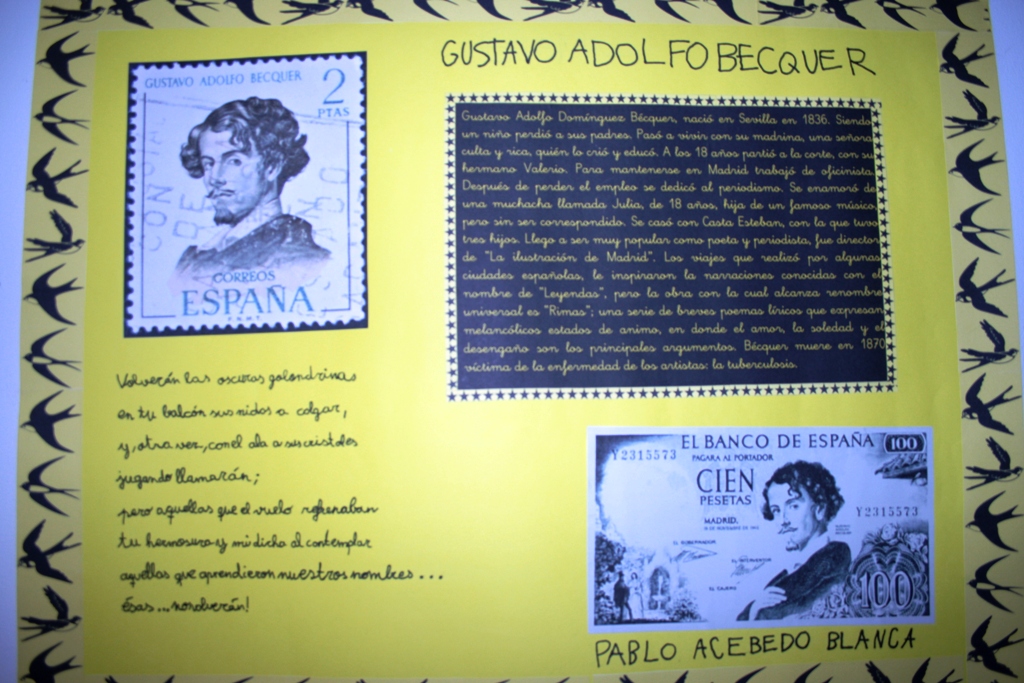 GUSTAVO ADOLFO BECQUER
GUSTAVO ADOLFO BECQUER
2
PTAS
CORREOS
ESPAÑA
F.N.M.T.
Gustavo Adolfo Domínguez Bécquer, nació en Sevilla en 1836. Siendo
un niño perdió a sus padres. Pasó a vivir con su madrina, una señora
culta y rica, quién lo crió y educó. A los 18 años partió a la corte, con su
hermano Valerio. Para mantenerse en Madrid trabajó de oficinista.
Después de perder el empleo se dedicó al periodismo. Se enamoró de
una muchacha llamada Julia, de 18 años, hija de un famoso músico,
pero sin ser correspondido. Se casó con Casta Esteban, con la que tuvo
tres hijos. Llego a ser muy popular como poeta y periodista, fue director
de "La ilustración de Madrid". Los viajes que realizó por algunas
ciudades españolas, le inspiraron la narraciones conocidas con el
nombre de "Leyendas", pero la obra con la cual alcanza renombre
universal es "Rimas"; una serie de breves poemas líricos que expresan
melancólicos estados de animo, en donde el amor, la soledad y el
desengaño son los principales argumentos. Bécquer muere en 1870
víctima de la enfermedad de los artistas: la tuberculosis.
Volverán las oscuras golondrinas
en tu balcón sus nidos a colgar,
y, otra vez, con el ala a sus cristales
jugando llamarán;
pero aquellas que el vuelo refrenaban
tu hermosura y mi dicha al contemplar
aquellas que aprendieron nuestros nombres...
ésas... no volverán!
EL BANCO DE ESPAÑA
100
Y2315573
PAGARA AL PORTADOR
CIEN
PESETAS
Y2315573
MADRID,
EL GOBERNADOR
EL INTERVENTOR
EL CAJERO
100
PABLO ACEBEDO BLANCA